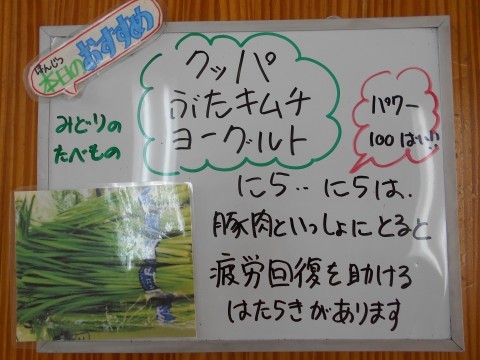 ほんじつ
本日のおすすめ
クッパ
ぶたキムチ
ヨーグルト
みどりの
たべもの
パワー
100ばい!!
にら‥にらは、
豚肉といっしょにとると
疲労回復を助ける
はたらきがあります